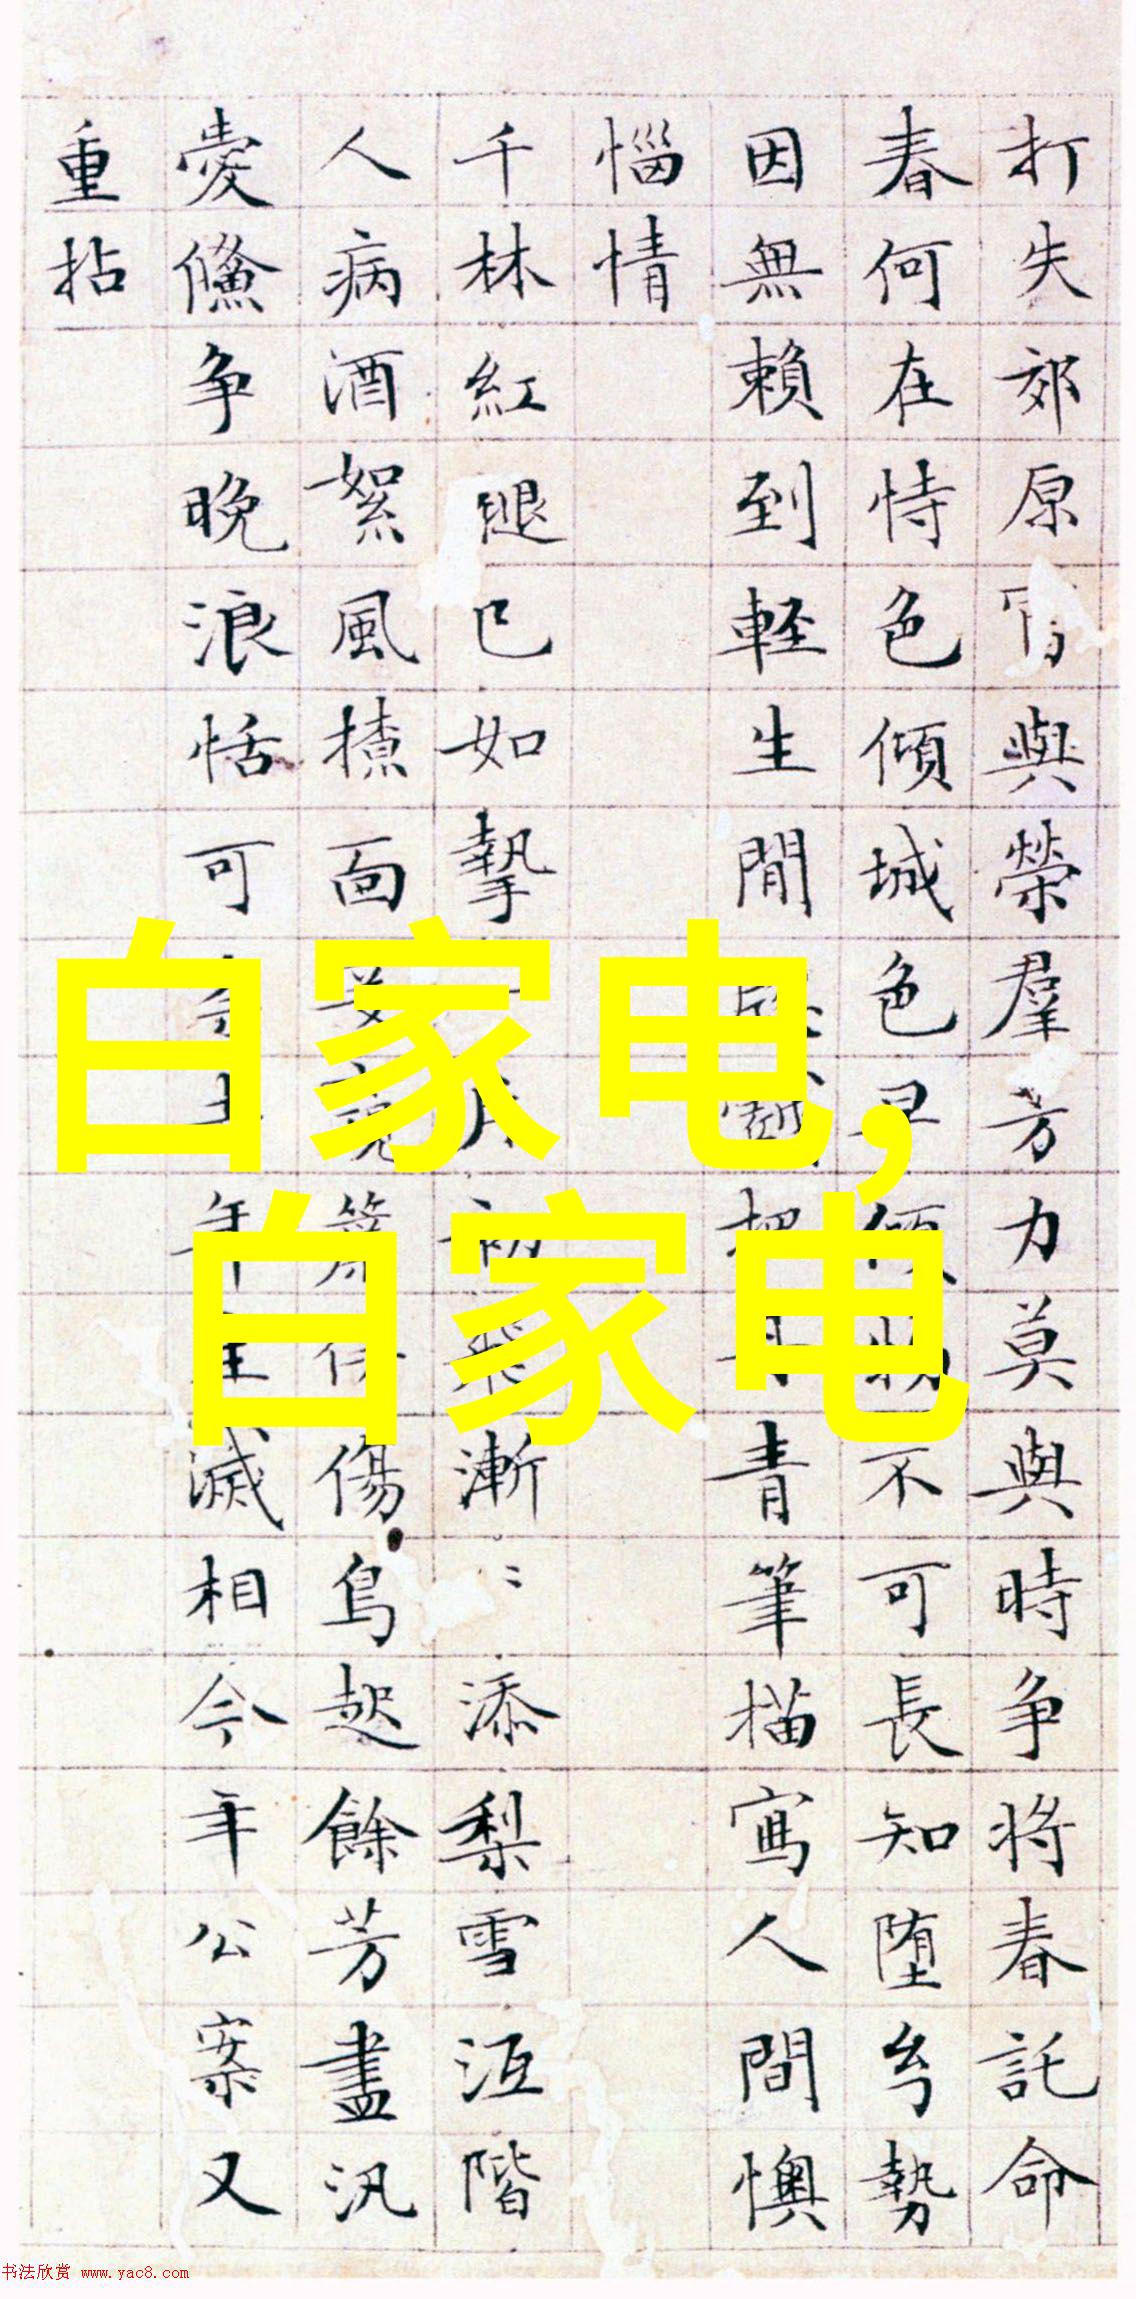 打失郊原 與榮羣芳力莫與時争将春託命
春何在恃色傾城色早傾 不可長知堕 勢
因無賴到軽生閒 青筆描寫人間懊
惱情
千林紅腿已如摯 初飛漸〻添梨雪沍階
人病酒絮風揸面 傷鳥起餘芳盡汎
愛 争晚浪恬可 年 滅相今年公案又
重拈
白家电,
白家电
书法欣赏 www.yac8.com